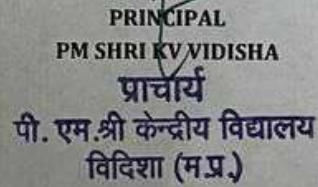 PRINCIPAL
PM SHRI KV VIDISHA
प्राचार्य
पी. एम.श्री केन्द्रीय विद्यालय
विदिशा (म.प्र.)